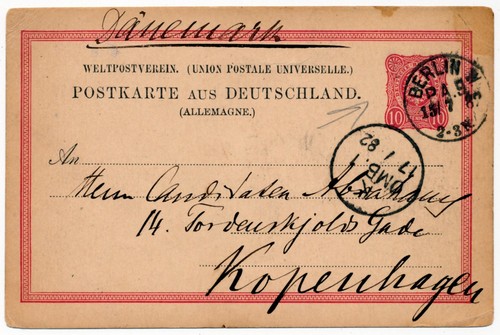 Dänemark
WELTPOSTVEREIN. (UNION POSTALE UNIVERSELLE.)
POSTKARTE AUS DEUTSCHLAND.
(ALLEMAGNE.)
10 10
BERLIN W.
P.A. 8.
15 7
2-3N.
OMB
17 / 82
An
Herrn Candidaten
14. Tordenskjolds Gade
Kopenhagen